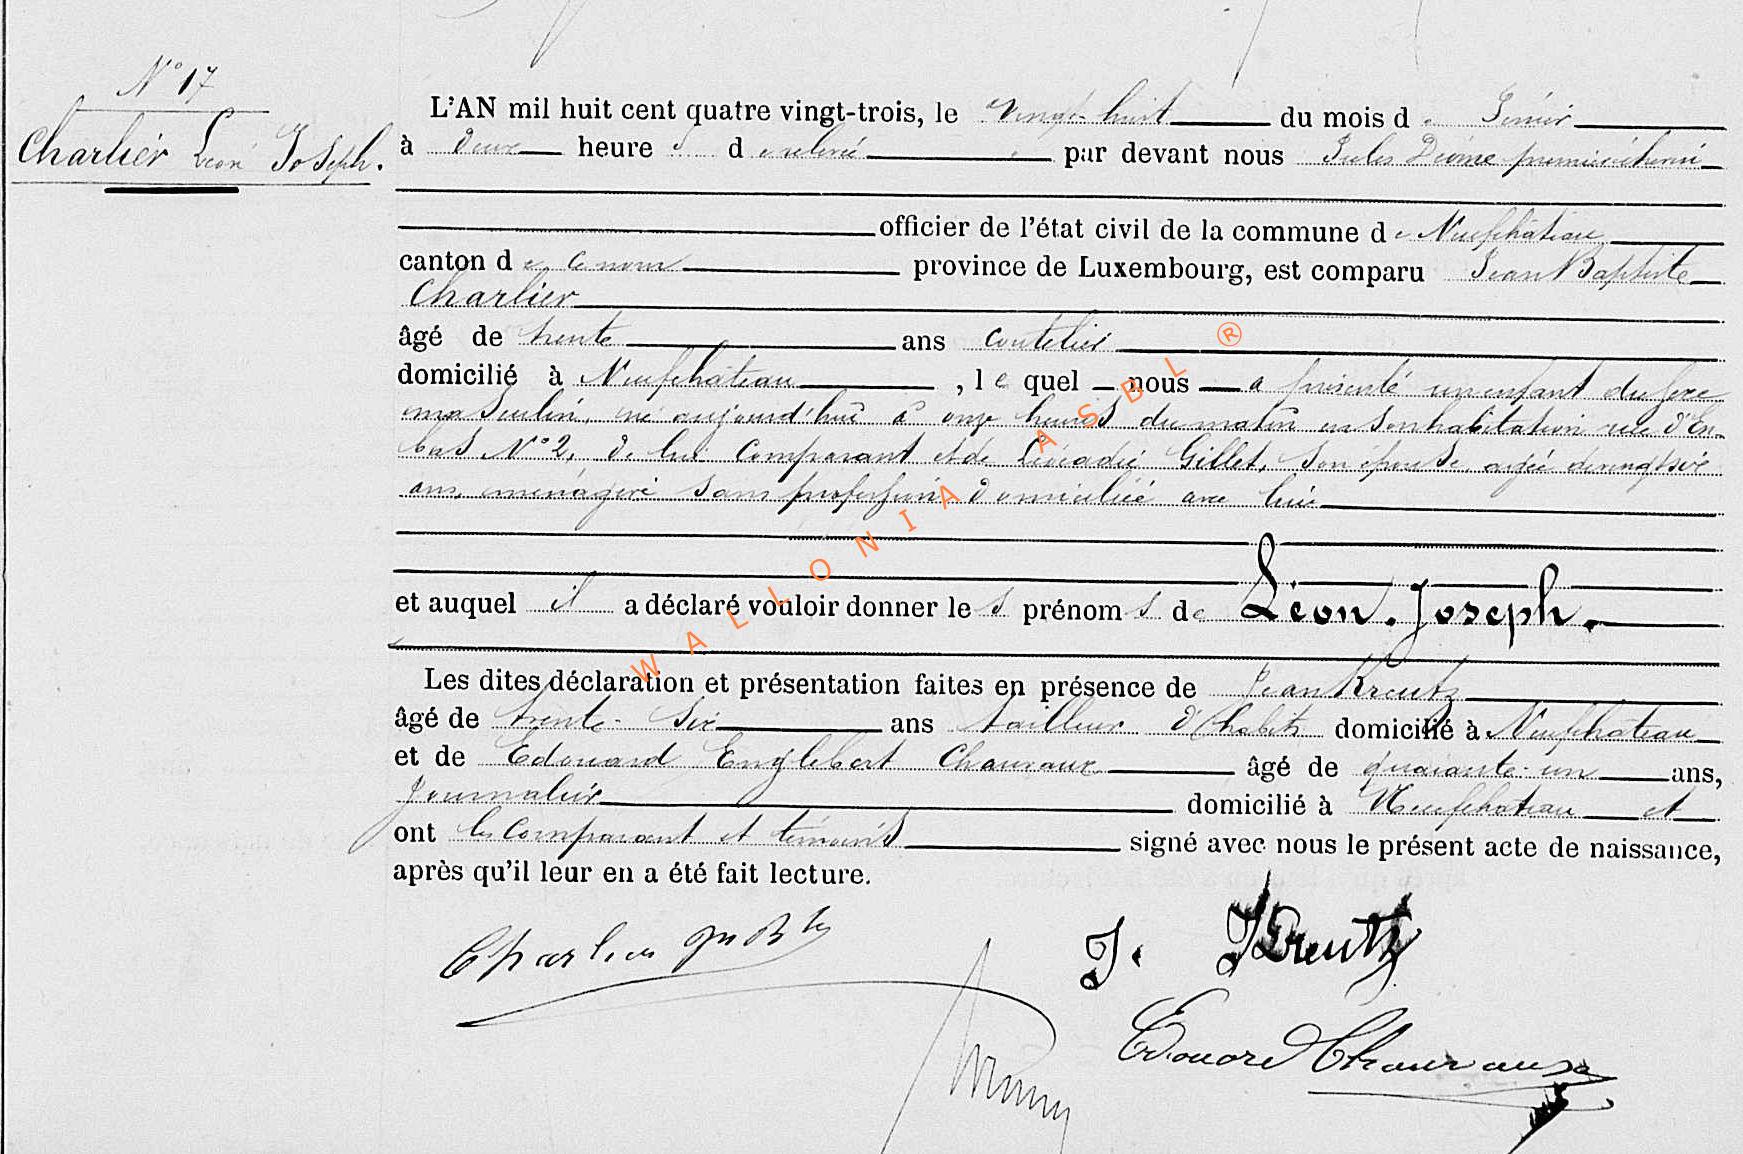 N° 17
Charlier Léon Joseph.
L'AN mil huit cent quatre vingt-trois, le vingt huit du mois de
à deux heures de relevé par devant nous Jules premier échevin
officier de l'état civil de la commune de Neufchâteau
canton de ce nom province de Luxembourg, est comparu Jean Baptiste
Charlier
âgé de trente ans coutelier
domicilié à Neufchâteau, lequel nous a présenté un enfant du sexe
masculin, né aujourd'hui à onze heures du matin en son habitation rue d'En-
bas N° 2, de lui Comparant et de Léocadie Gillet, son épouse, agée de vingt six
ans, ménagère sans profession domiciliée avec lui
et auquel il a déclaré vouloir donner les prénoms de Léon. Joseph.
Les dites déclaration et présentation faites en présence de Jean Kreutz
âgé de trente-six ans tailleur d'habits domicilié à Neufchâteau
et de Edouard Englebert Chauvaux âgé de quarante-un ans,
journalier domicilié à Neufchâteau et
ont les Comparant et témoins signé avec nous le présent acte de naissance,
après qu'il leur en a été fait lecture.
Charlier Jn Bte
J. Kreutz
Edouard Chauvaux
WALLONIA ASBL ®